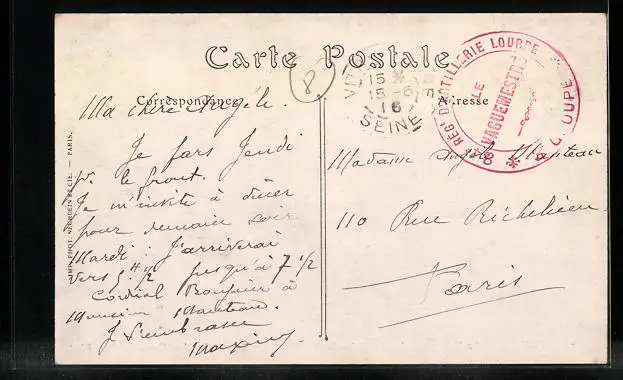 Carte Postale
Correspondance
Adresse
Ma chère Angèle.
Je pars Jeudi
pr. le front.
Je m'invite à dîner
pour demain soir
Mardi : J'arriverai
vers 6h 1/2 jusqu'à 7 1/2
Cordial Bonjour à
Monsieur Manteau.
Je t'embrasse
Madame Angèle Manteau
110 Rue Richelieu
Paris
8
15 *
15 - 6
16
SEINE
REGt D'ARTILLERIE LOURDE
LE
VAGUEMESTRE
GROUPE
IMP. PHOT. NEURDEIN ET CIE. — PARIS.